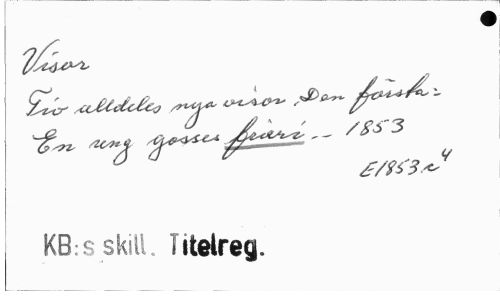 Visor
Tio alldeles nya visor. Den första:
En ung gosses frieri -- 1853
E1853c⁴
KB:s skill. Titelreg.